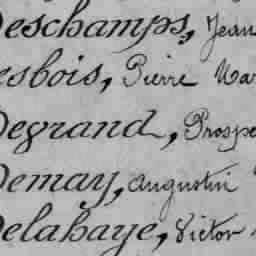 Deschamps, Jean
Desbois, Pierre Mar
Degrand, Prospe
Demay, Augustin
Delahaye, Victor